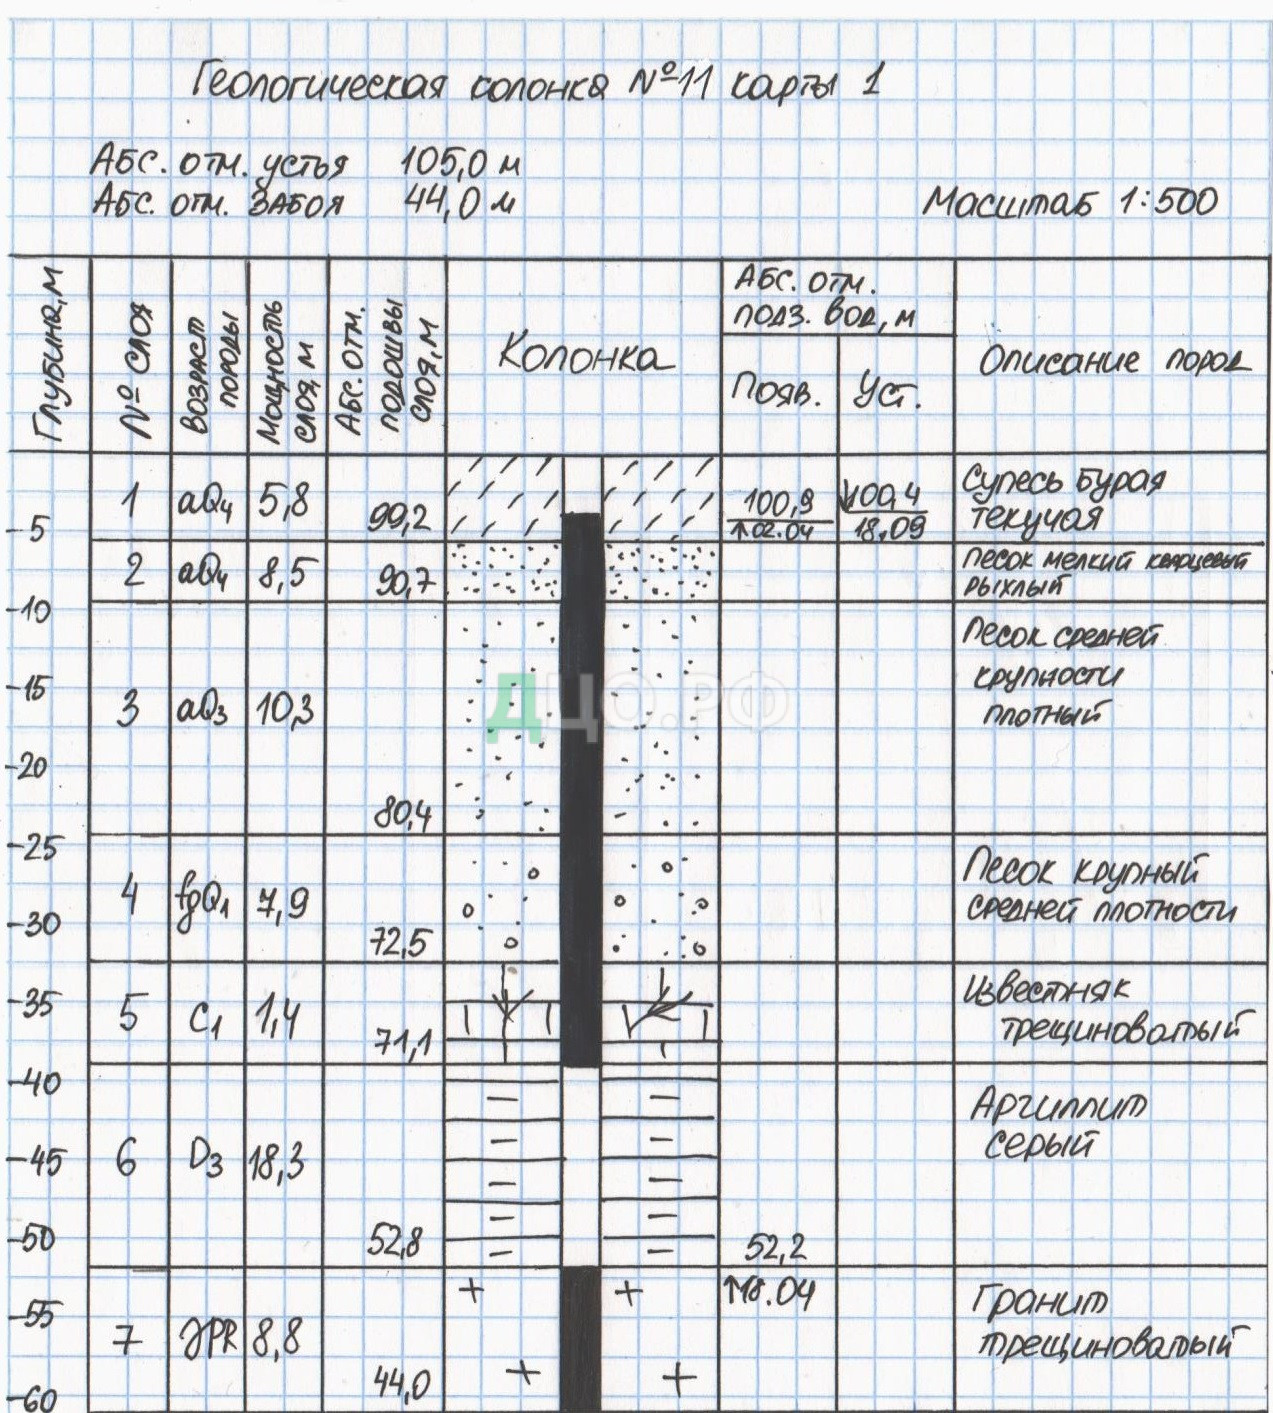 Геологическая колонка №11 карты 1
Абс. отм. устья 105,0 м
Абс. отм. забоя 44,0 м
Масштаб 1:500
Глубина, м
№ слоя
Возраст породы
Мощность слоя, м
Абс. отм. подошвы слоя, м
Колонка
Абс. отм.
подз. вод, м
Появ.
Уст.
Описание пород
1 aQ4 5,8 99,2 100,9 100,4 Супесь бурая
↑02.04 18.09 текучая
-5
2 aQ4 8,5 90,7 Песок мелкий кварцевый
рыхлый
-10
Песок средней
крупности
-15
3 aQ3 10,3 плотный
ДЦО.РФ
-20
80,4
-25
Песок крупный
4 fgQ1 7,9 средней плотности
-30
72,5
Известняк
-35
5 C1 1,4 71,1 трещиноватый
-40
Аргиллит
серый
-45
6 D3 18,3
-50
52,8 52,2
↑18.04
Гранит
-55
7 γPR 8,8 трещиноватый
44,0
-60